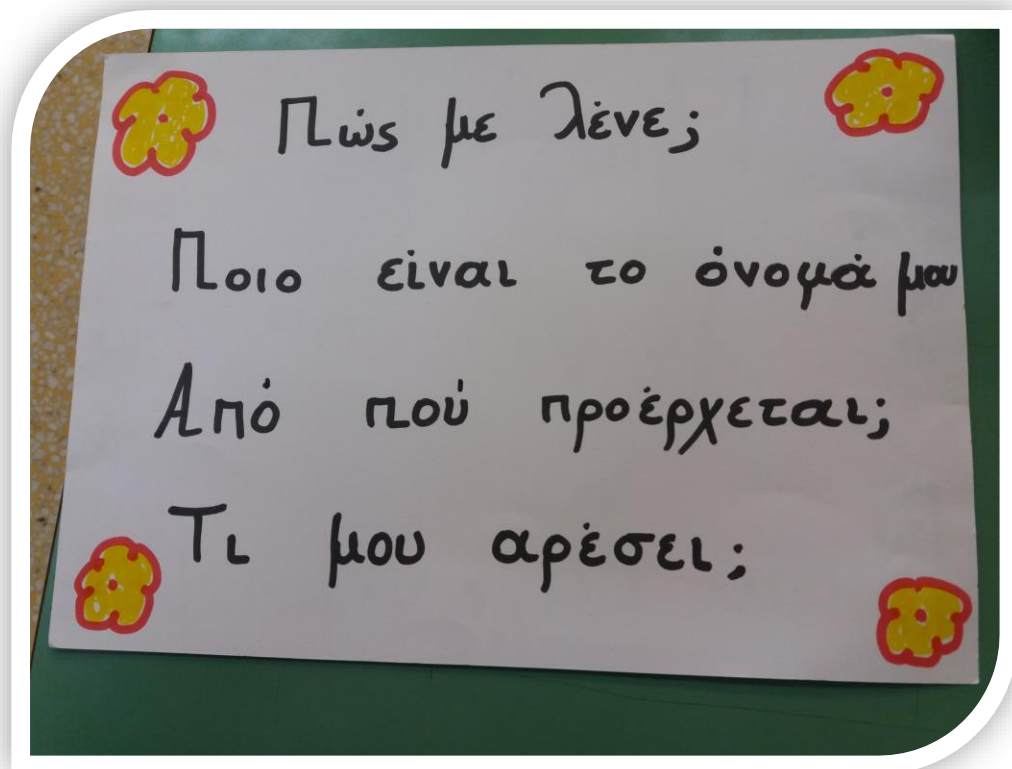 Πώς με λένε;
Ποιο είναι το όνομά μου
Από πού προέρχεται;
Τι μου αρέσει;